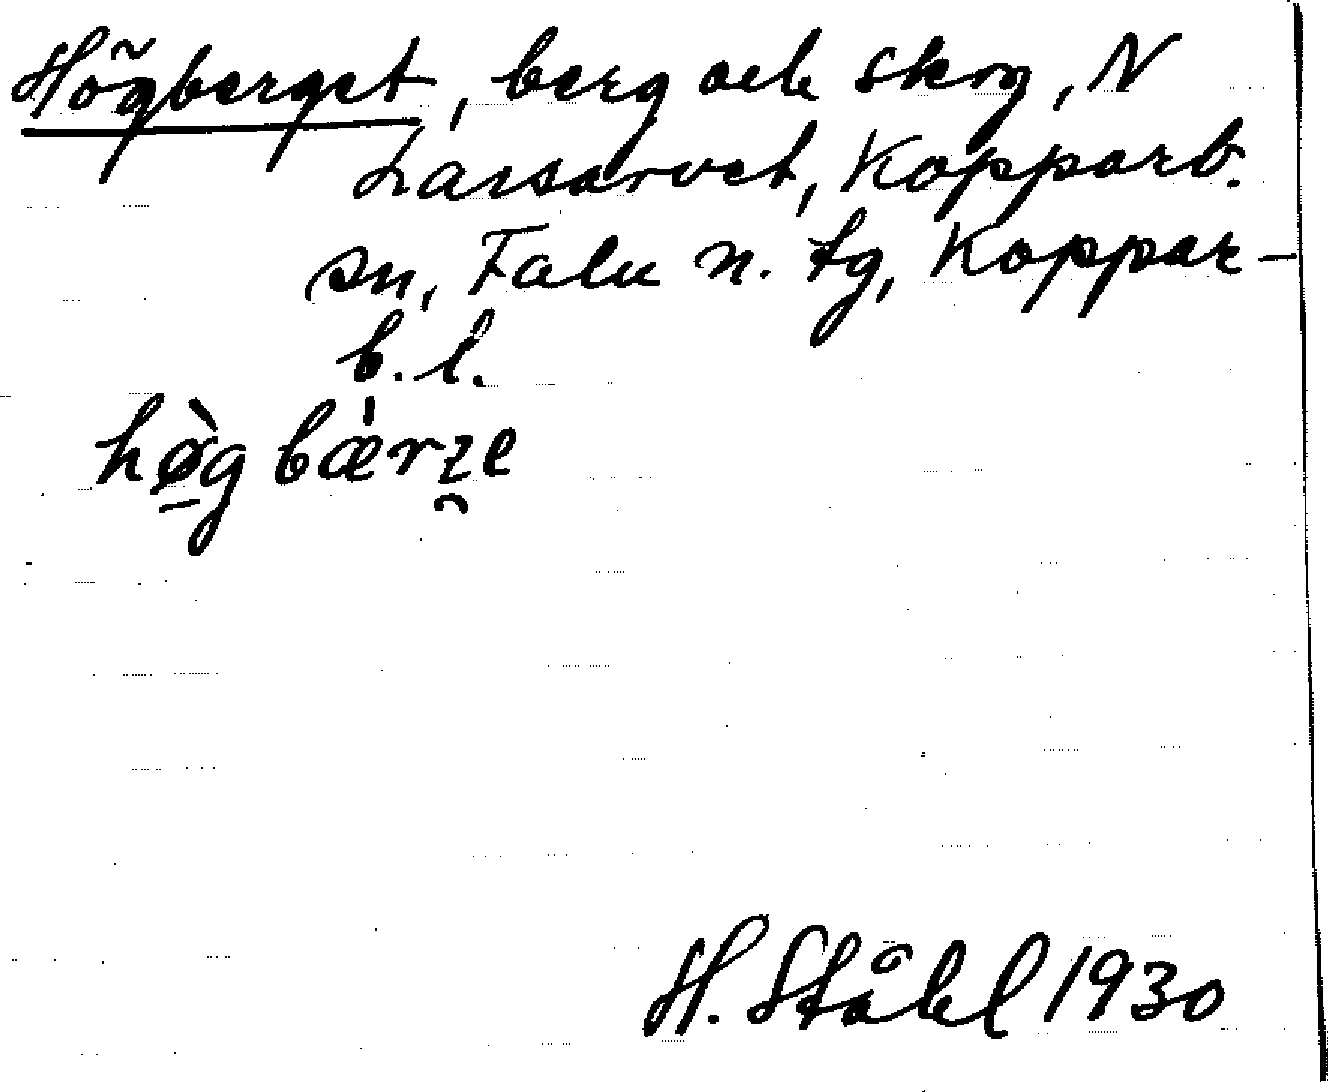 Högberget, berg och skog, N
Larsarvet, Kopparb.
sn, Falu n. tg, Koppar-
b. l.
hø̀g bæ̀rze
H. Ståhl 1930